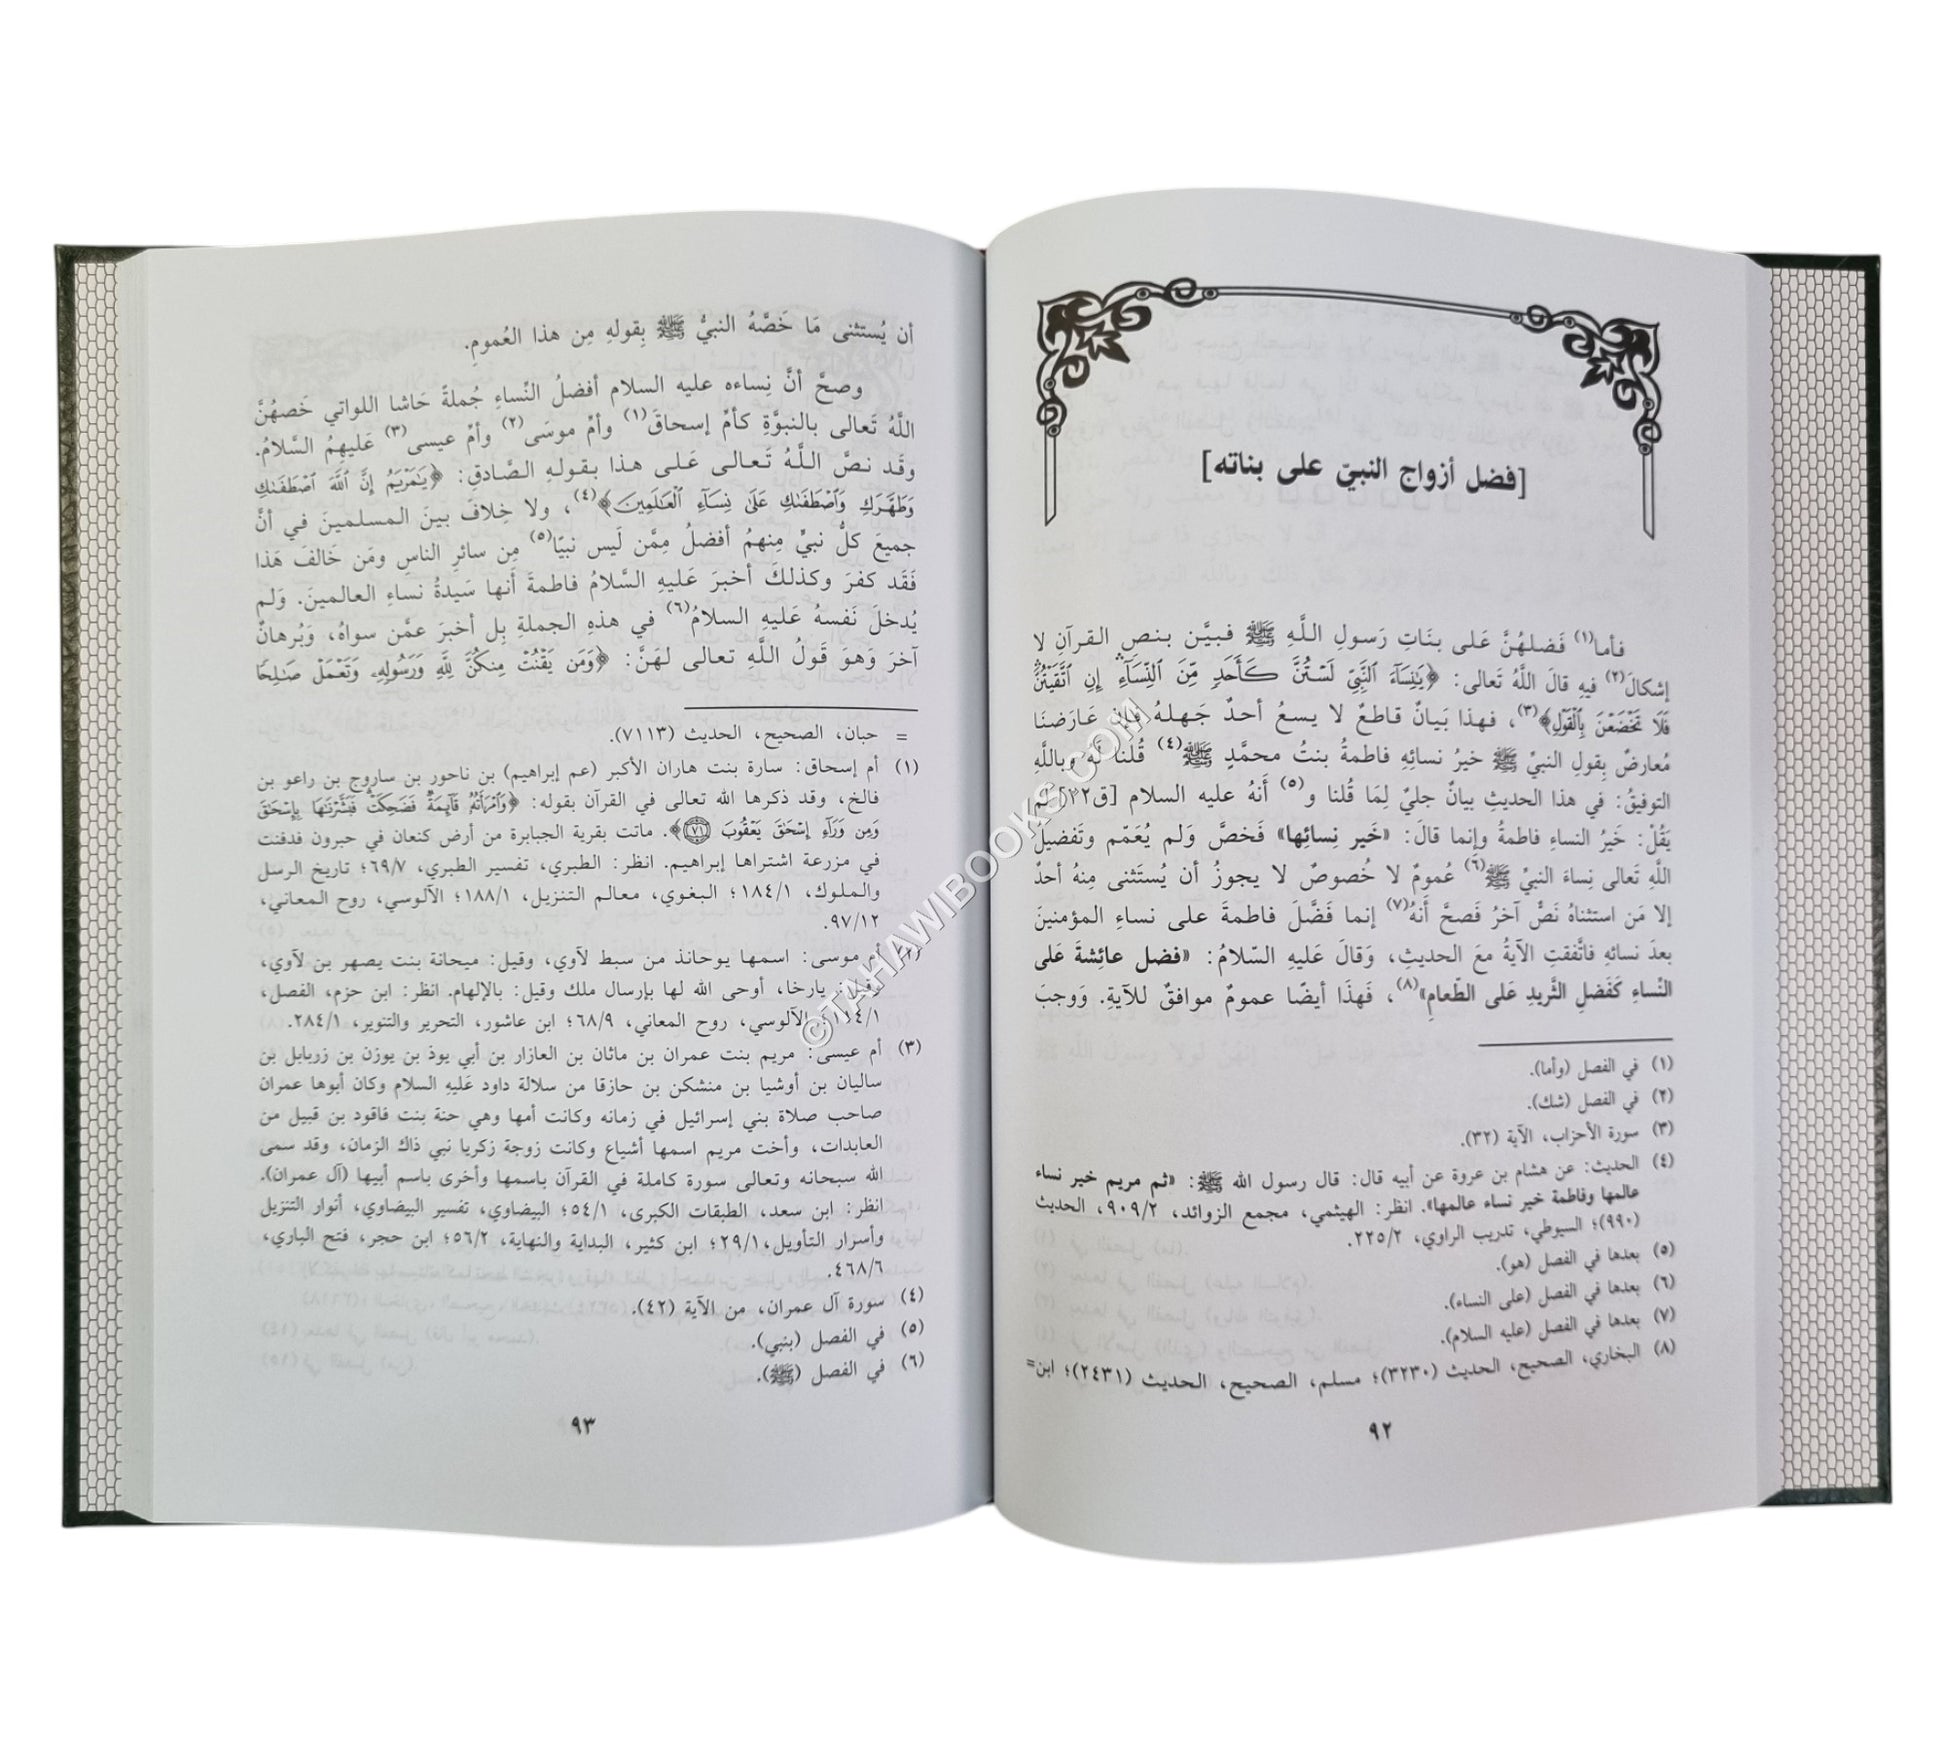 [فضل أزواج النبيّ على بناته]
فأما(١) فَضلهُنَّ عَلى بنَاتِ رَسولِ اللَّهِ ﷺ فبيَّن بنصِ القرآنِ لا
إشكالَ(٢) فيهِ قالَ اللَّهُ تَعالى: ﴿يَٰنِسَآءَ ٱلنَّبِيِّ لَسۡتُنَّ كَأَحَدٖ مِّنَ ٱلنِّسَآءِ إِنِ ٱتَّقَيۡتُنَّۚ
فَلَا تَخۡضَعۡنَ بِٱلۡقَوۡلِ﴾(٣)، فهذا بَيانٌ قاطعٌ لا يسعُ أحدٌ جَهلهُ فإن عَارضنَا
مُعارضٌ بِقولِ النبيِّ ﷺ خيرُ نسائِهِ فاطمةُ بنتُ محمَّدٍ ﷺ(٤) قُلنا لَه وباللَّهِ
التوفيقُ: في هذا الحديثِ بيانٌ جليٌ لِمَا قُلنا و(٥) أَنهُ عليه السلام [ق٢٢] لم
يَقُلْ: خَيرُ النساءِ فاطمةُ وإنما قالَ: «خَير نِسائِها» فَخصَّ وَلم يُعَمّم وتَفضيلُ
اللَّهِ تَعالى نِساءَ النبيِّ ﷺ(٦) عُمومٌ لا خُصوصٌ لا يجوزُ أن يُستَثنى مِنهُ أحدٌ
إلا مَن استثناهُ نَصٌ آخرُ فَصحَّ أَنهُ(٧) إنما فَضَّلَ فاطمةَ على نساءِ المؤمنينَ
بعدَ نسائهِ فاتَّفقتِ الآيةُ معَ الحديثِ، وَقالَ عَليهِ السّلامُ: «فضل عائِشةَ عَلى
النّساءِ كَفَضلِ الثَّريدِ عَلى الطّعامِ»(٨)، فَهذَا أيضًا عمومٌ موافقٌ للآيةِ. وَوجبَ
(١) في الفصل (وأما).
(٢) في الفصل (شك).
(٣) سورة الأحزاب، الآية (٣٢).
(٤) الحديث: عن هشام بن عروة عن أبيه قال: قال رسول الله ﷺ: «ثم مريم خير نساء
عالمها وفاطمة خير نساء عالمها». انظر: الهيثمي، مجمع الزوائد، ٩٠٩/٢، الحديث
(٩٩٠)؛ السيوطي، تدريب الراوي، ٢٢٥/٢.
(٥) بعدها في الفصل (هو).
(٦) بعدها في الفصل (على النساء).
(٧) بعدها في الفصل (عليه السلام).
(٨) البخاري، الصحيح، الحديث (٣٢٣٠)؛ مسلم، الصحيح، الحديث (٢٤٣١)؛ ابن=
٩٢
أن يُستثنى مَا خَصَّهُ النبيُّ ﷺ بِقولهِ مِن هذا العُمومِ.
وصحَّ أنَّ نِساءه عليه السلام أفضلُ النِّساءِ جُملةً حَاشا اللواتي خَصهُنَّ
اللَّهُ تَعالى بالنبوَّةِ كأمِّ إسحاقَ(١) وأمِّ موسَى(٢) وأمِّ عيسى(٣) عَليهِمُ السَّلامُ.
وقَد نصَّ اللَّهُ تَعالى عَلى هذا بقولهِ الصَّادقِ: ﴿يَٰمَرۡيَمُ إِنَّ ٱللَّهَ ٱصۡطَفَىٰكِ
وَطَهَّرَكِ وَٱصۡطَفَىٰكِ عَلَىٰ نِسَآءِ ٱلۡعَٰلَمِينَ﴾(٤)، ولا خِلافَ بينَ المسلمينَ في أنَّ
جميعَ كلُّ نبيٍّ مِنهمُ أفضلُ مِمَّن لَيس نبيًا(٥) مِن سائرِ الناسِ ومَن خَالفَ هَذا
فَقَد كفرَ وكذلكَ أخبرَ عَليهِ السَّلامُ فاطمةَ أنها سَيدةُ نساءِ العالمينَ. وَلم
يُدخلَ نَفسهُ عَليهِ السلامُ(٦) في هذهِ الجملةِ بل أخبرَ عمَّن سواهُ، وَبُرهانٌ
آخرَ وَهوَ قَولُ اللَّهِ تعالى لهَنَّ: ﴿وَمَن يَقۡنُتۡ مِنكُنَّ لِلَّهِ وَرَسُولِهِۦ وَتَعۡمَلۡ صَٰلِحٗا
= حبان، الصحيح، الحديث (٧١١٣).
(١) أم إسحاق: سارة بنت هاران الأكبر (عم إبراهيم) بن ناحور بن ساروج بن راعو بن
فالخ، وقد ذكرها الله تعالى في القرآن بقوله: ﴿وَٱمۡرَأَتُهُۥ قَآئِمَةٞ فَضَحِكَتۡ فَبَشَّرۡنَٰهَا بِإِسۡحَٰقَ
وَمِن وَرَآءِ إِسۡحَٰقَ يَعۡقُوبَ ٧١﴾. ماتت بقرية الجبابرة من أرض كنعان في حبرون فدفنت
في مزرعة اشتراها إبراهيم. انظر: الطبري، تفسير الطبري، ٦٩/٧؛ تاريخ الرسل
والملوك، ١٨٤/١؛ البغوي، معالم التنزيل، ١٨٨/١؛ الآلوسي، روح المعاني،
٩٧/١٢.
(٢) أم موسى: اسمها يوحانذ من سبط لآوي، وقيل: ميحانة بنت يصهر بن لآوي،
وقيل: يارخا، أوحى الله لها بإرسال ملك وقيل: بالإلهام. انظر: ابن حزم، الفصل،
الآلوسي، روح المعاني، ٦٨/٩؛ ابن عاشور، التحرير والتنوير، ٢٨٤/١.
(٣) أم عيسى: مريم بنت عمران بن ماثان بن العازار بن أبي يوذ بن يوزن بن زربابل بن
ساليان بن أوشيا بن منشكن بن حازقا من سلالة داود عَليهِ السلام وكان أبوها عمران
صاحب صلاة بني إسرائيل في زمانه وكانت أمها وهي حنة بنت فاقود بن قبيل من
العابدات، وأخت مريم اسمها أشياع وكانت زوجة زكريا نبي ذاك الزمان، وقد سمى
الله سبحانه وتعالى سورة كاملة في القرآن باسمها وأخرى باسم أبيها (آل عمران).
انظر: ابن سعد، الطبقات الكبرى، ٥٤/١؛ البيضاوي، تفسير البيضاوي، أنوار التنزيل
وأسرار التأويل،٢٩/١؛ ابن كثير، البداية والنهاية، ٥٦/٢؛ ابن حجر، فتح الباري،
٤٦٨/٦.
(٤) سورة آل عمران، من الآية (٤٢).
(٥) في الفصل (بنبي).
(٦) في الفصل (ﷺ).
٩٣
©TAHAWIBOOKS.COM